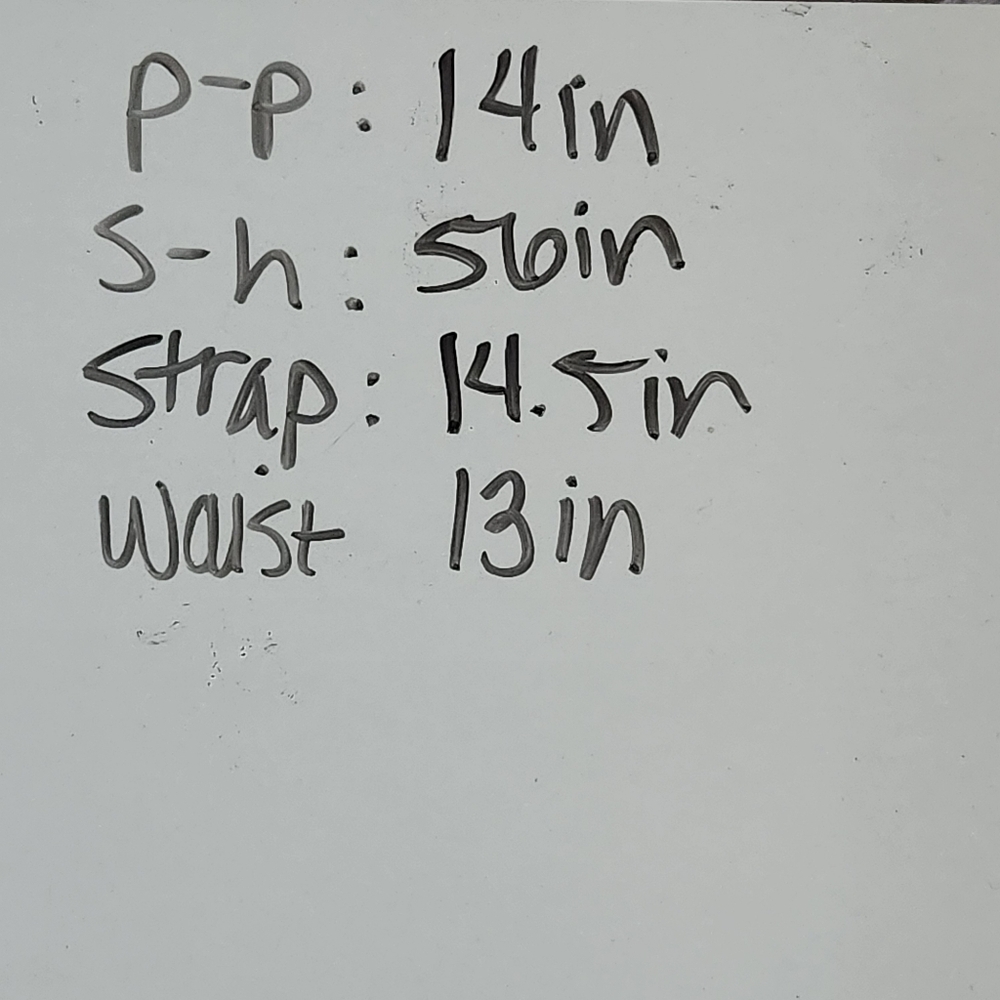 p-p: 14in
s-h: 56in
Strap: 14.5in
Waist 13in